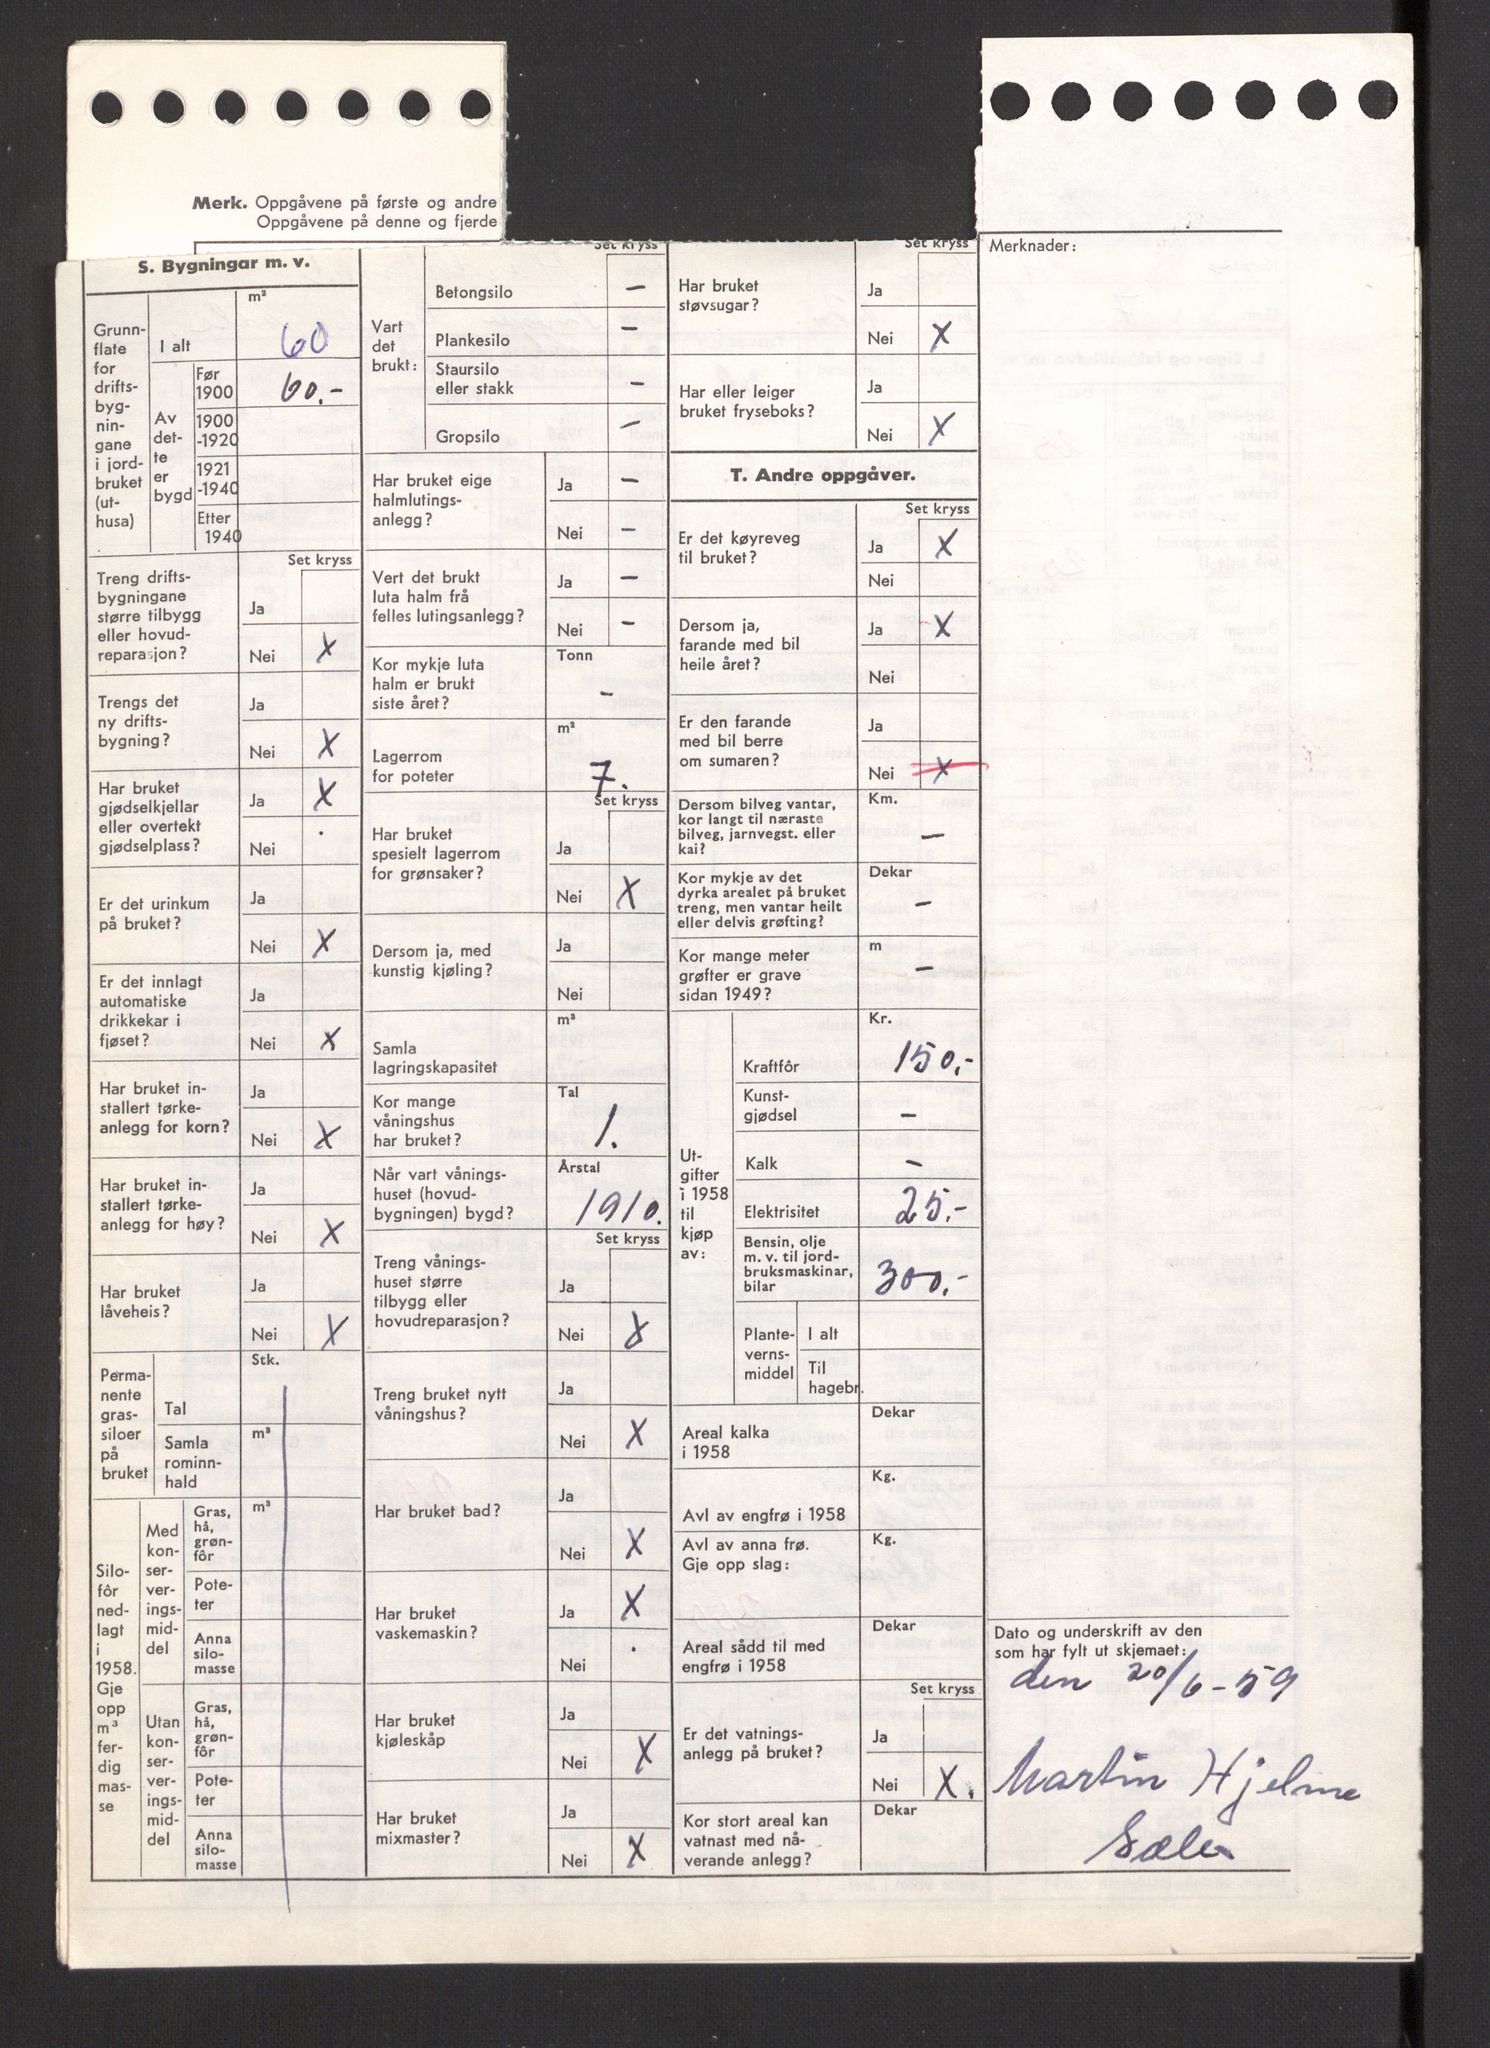 Merk. Oppgåvene på første og andre
Oppgåvene på denne og fjerde
S. Bygningar m. v.
m²
Grunn-
flate
for
drifts-
byg-
nin-
gane
i jord-
bruket
(ut-
husa)
I alt 60
Av
det-
te
er
bygd
Før
1900 60.-
1900
-1920
1921
-1940
Etter
1940
Set kryss
Treng drifts-
bygningane
større tilbygg
eller hovud-
reparasjon?
Ja
Nei X
Trengs det
ny drifts-
bygning?
Ja
Nei X
Har bruket
gjødselkjellar
eller overtekt
gjødselplass?
Ja X
Nei .
Er det urinkum
på bruket?
Ja
Nei X
Er det innlagt
automatiske
drikkekar i
fjøset?
Ja
Nei X
Har bruket in-
stallert tørke-
anlegg for korn?
Ja
Nei X
Har bruket in-
stallert tørke-
anlegg for høy?
Ja
Nei X
Har bruket
låveheis?
Ja
Nei X
Perma-
nente
gras-
siloer
på
bruket
Stk.
Tal
Samla
rominn-
hald
m³
Silo-
fôr
ned-
lagt
i
1958.
Gje
opp
m³
fer-
dig
mas-
se
Med
kon-
ser-
ver-
ings-
mid-
del
Gras,
hå,
grøn-
fôr
m³
Pote-
ter
Anna
silo-
masse
Utan
kon-
ser-
ver-
ings-
mid-
del
Gras,
hå,
grøn-
fôr
Pote-
ter
Anna
silo-
masse
Set kryss
Vart
det
brukt:
Betongsilo –
Plankesilo –
Staursilo
eller stakk –
Gropsilo –
Har bruket eige
halmlutings-
anlegg?
Ja –
Nei –
Vert det brukt
luta halm frå
felles lutingsanlegg?
Ja –
Nei –
Kor mykje luta
halm er brukt
siste året?
Tonn
–
Lagerrom
for poteter
m²
7.
Set kryss
Har bruket
spesielt lagerrom
for grønsaker?
Ja
Nei X
Dersom ja, med
kunstig kjøling?
Ja
Nei
Samla
lagringskapasitet
m³
Kor mange
våningshus
har bruket?
Tal
1.
Når vart vånings-
huset (hovud-
bygningen) bygd?
Årstal
1910.
Set kryss
Treng vånings-
huset større
tilbygg eller
hovudreparasjon?
Ja
Nei X
Treng bruket nytt
våningshus?
Ja
Nei X
Har bruket bad?
Ja
Nei X
Har bruket
vaskemaskin?
Ja X
Nei .
Har bruket
kjøleskåp
Ja
Nei X
Har bruket
mixmaster?
Ja
Nei X
Set kryss
Har bruket
støvsugar?
Ja
Nei X
Har eller leiger
bruket fryseboks?
Ja
Nei X
T. Andre oppgåver.
Set kryss
Er det køyreveg
til bruket?
Ja X
Nei
Dersom ja,
farande med bil
heile året?
Ja X
Nei
Er den farande
med bil berre
om sumaren?
Ja
Nei X
Dersom bilveg vantar,
kor langt til næraste
bilveg, jarnvegst. eller
kai?
Km.
–
Kor mykje av det
dyrka arealet på bruket
treng, men vantar heilt
eller delvis grøfting?
Dekar
–
Kor mange meter
grøfter er grave
sidan 1949?
m
–
Ut-
gifter
i 1958
til
kjøp
av:
Kr.
Kraftfôr 150.-
Kunst-
gjødsel –
Kalk –
Elektrisitet 25.-
Bensin, olje
m. v. til jord-
bruksmaskinar,
bilar 300.-
Plante-
verns-
middel
I alt
Til
hagebr.
Areal kalka
i 1958
Dekar
Avl av engfrø i 1958
Kg.
Avl av anna frø.
Gje opp slag:
Kg.
Areal sådd til med
engfrø i 1958
Dekar
Set kryss
Er det vatnings-
anlegg på bruket?
Ja
Nei X.
Kor stort areal kan
vatnast med nå-
verande anlegg?
Dekar
Merknader:
Dato og underskrift av den
som har fylt ut skjemaet:
den 20/6-59
Martin Hjelme